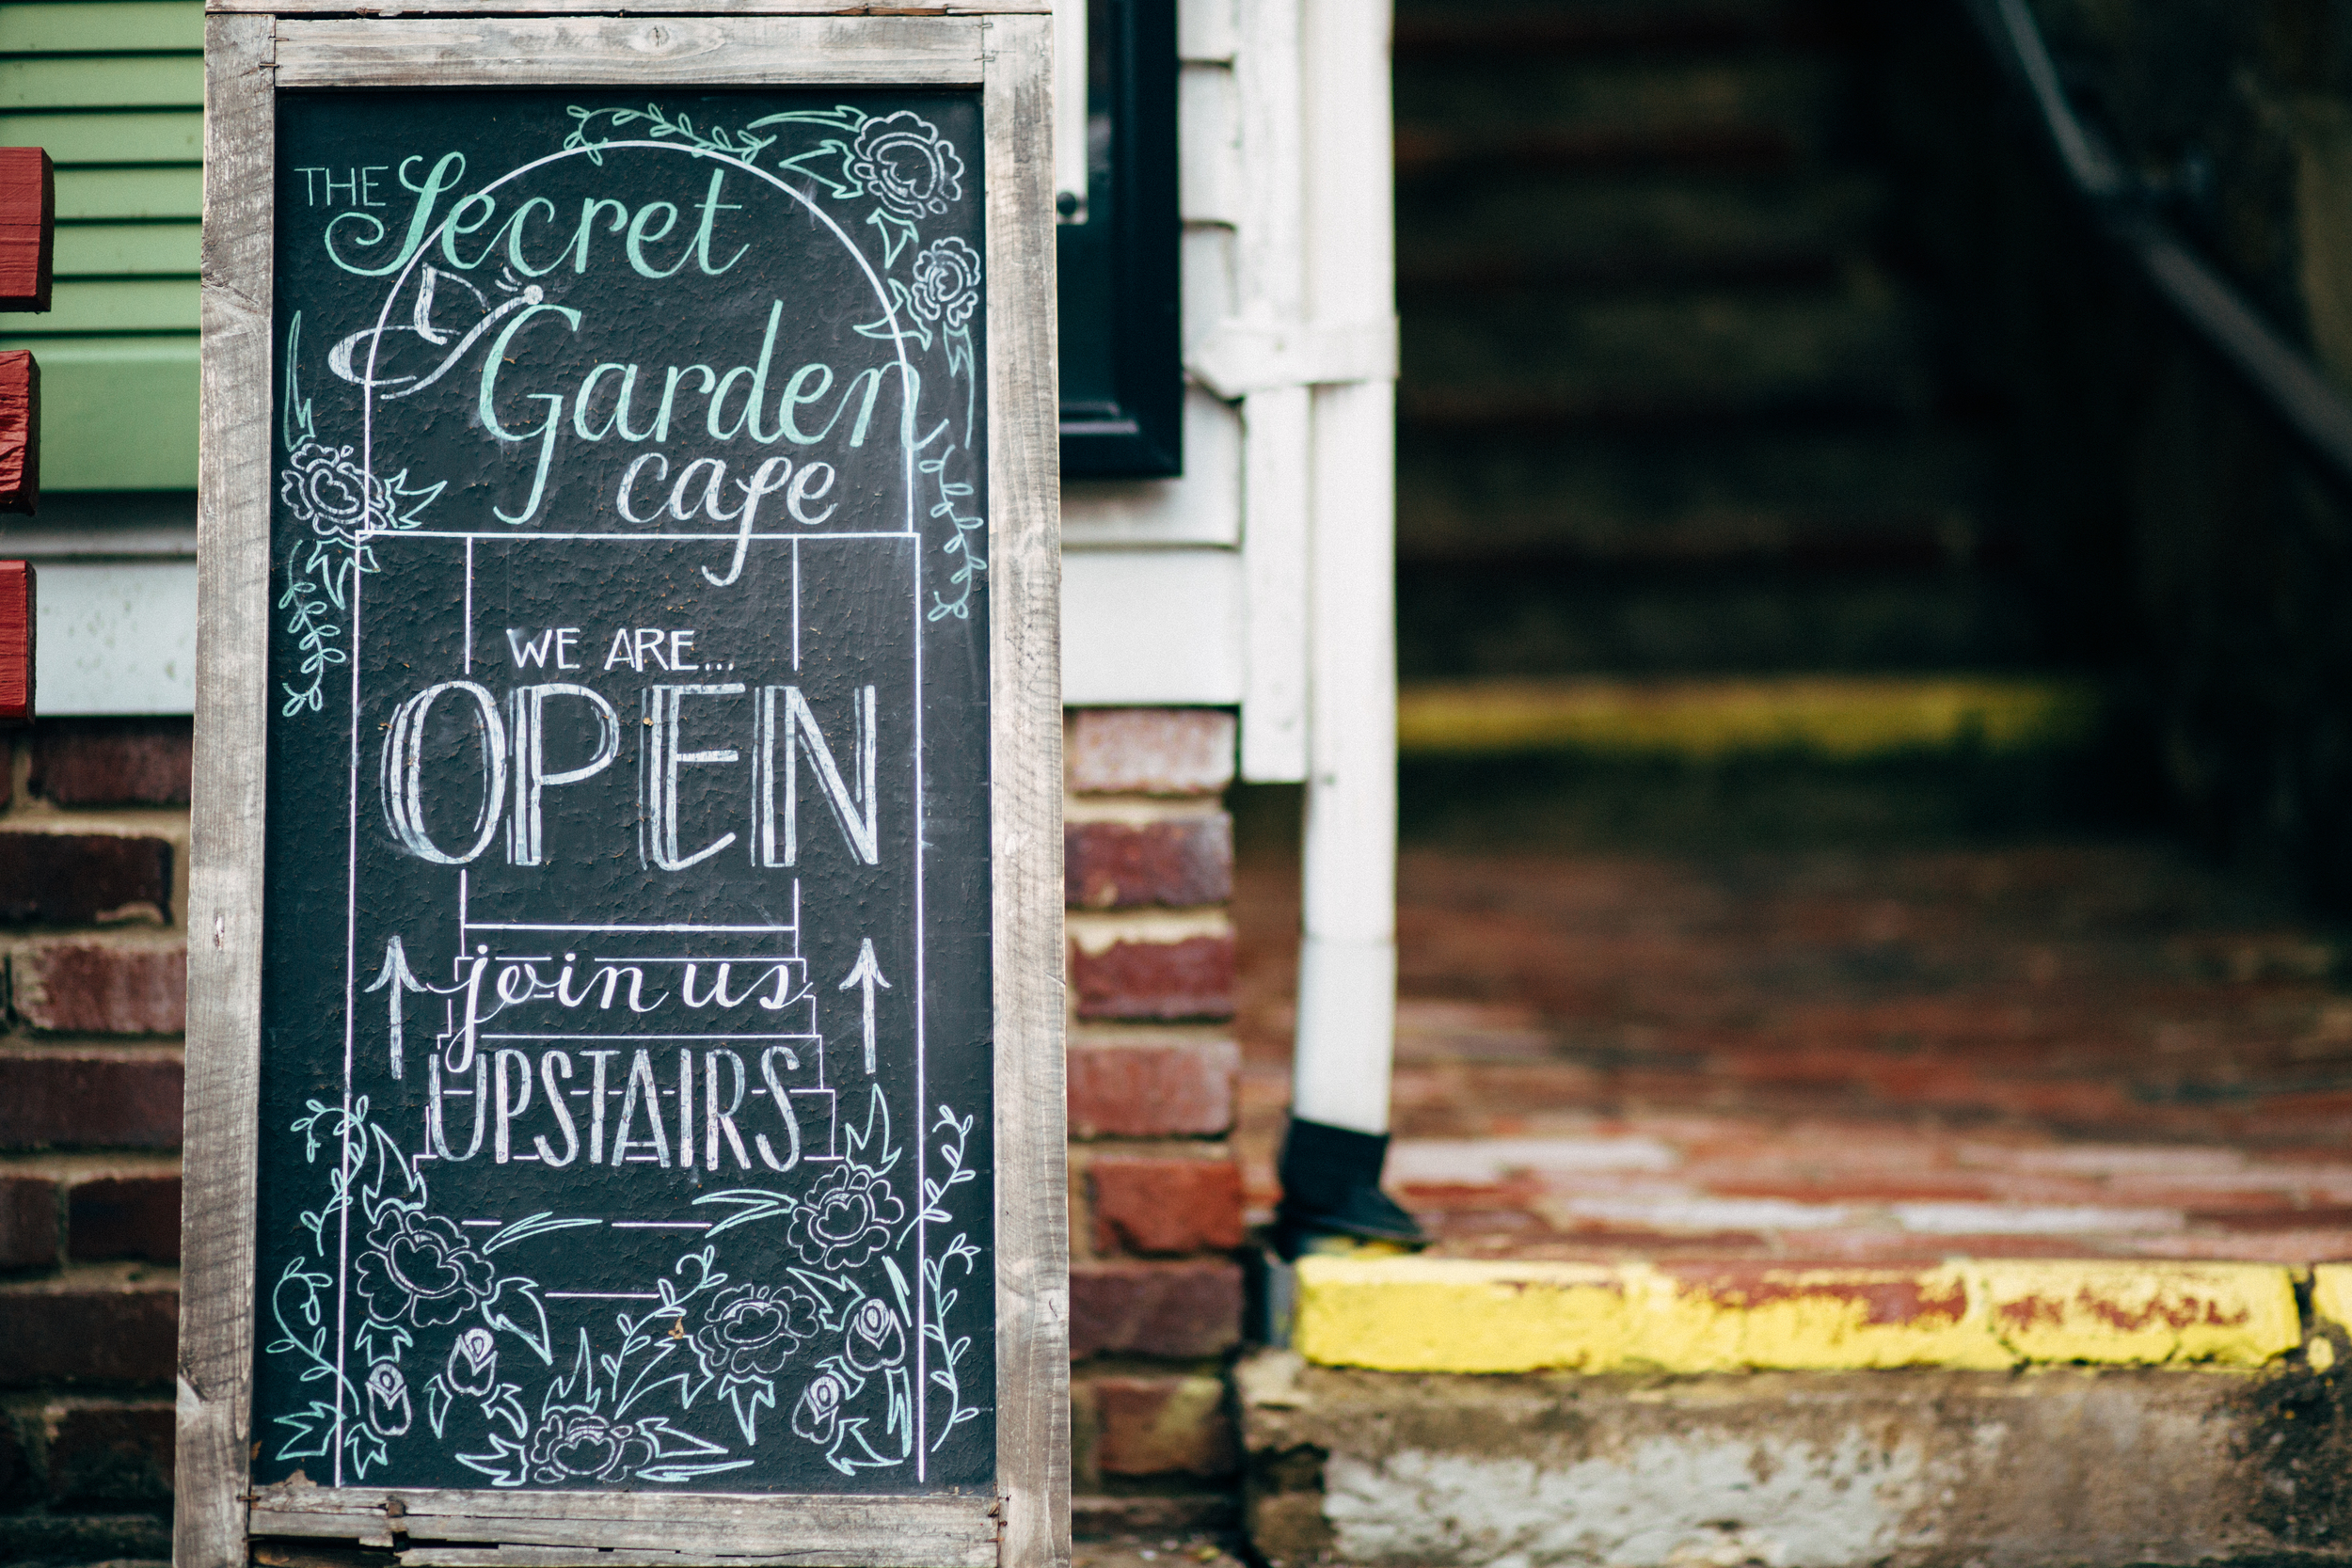 THE Secret
Garden
cafe
WE ARE...
OPEN
join us
UPSTAIRS